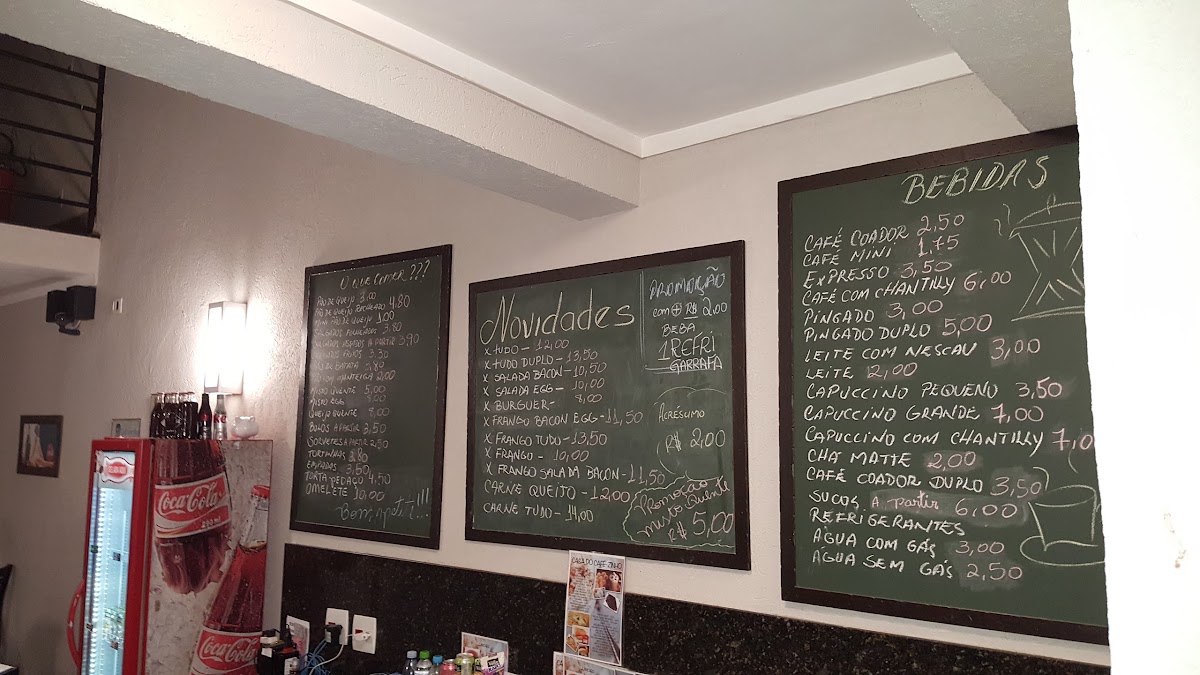 O QUE COMER???
PÃO DE QUEIJO 3,00
PÃO DE QUEIJO RECHEADO 4,80
MINI PÃO DE QUEIJO 1,00
SALGADOS 3,80
SALGADOS ASSADOS A PARTIR 3,90
SALGADOS FRITOS 3,30
PÃO DE BATATA 3,80
MANTEIGA 2,00
MISTO QUENTE 5,00
MISTO EGG 8,00
QUEIJO QUENTE 8,00
BOLOS A PARTIR 3,50
SORVETES A PARTIR 2,50
TORTINHAS 3,80
EMPADAS 3,50
TORTA PEDAÇO 4,50
OMELETE 10,00
Bom Apetit!!!
Novidades
X TUDO - 12,00
X TUDO DUPLO - 13,50
X SALADA BACON - 10,50
X SALADA EGG - 10,00
X BURGUER - 8,00
X FRANGO BACON EGG - 11,50
X FRANGO TUDO - 13,50
X FRANGO - 10,00
X FRANGO SALADA BACON - 11,50
CARNE QUEIJO - 12,00
CARNE TUDO - 14,00
PROMOÇÃO
COM + R$ 2,00
BEBA
1 REFRI
GARRAFA
ACRÉSIMO
R$ 2,00
PROMOÇÃO
MISTO QUENTE
R$ 5,00
BEBIDAS
CAFÉ COADOR 2,50
CAFÉ MINI 1,75
EXPRESSO 3,50
CAFÉ COM CHANTILLY 6,00
PINGADO 3,00
PINGADO DUPLO 5,00
LEITE COM NESCAU 3,00
LEITE 2,00
CAPUCCINO PEQUENO 3,50
CAPUCCINO GRANDE 7,00
CAPUCCINO COM CHANTILLY 7,0
CHÁ MATTE 2,00
CAFÉ COADOR DUPLO 3,50
SUCOS A partir 6,00
REFRIGERANTES
ÁGUA COM GÁS 3,00
ÁGUA SEM GÁS 2,50
Coca-Cola
290 ml
Coca-Cola
CASA DO CAFÉZINHO